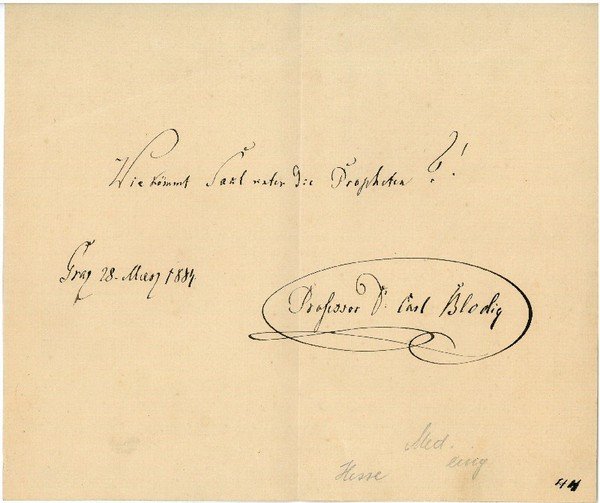 Wie kömmt Saul unter die Propheten ?!
Graz 28. März 1884
Professor Dr. Carl Blodig
Med.
Hesse
44